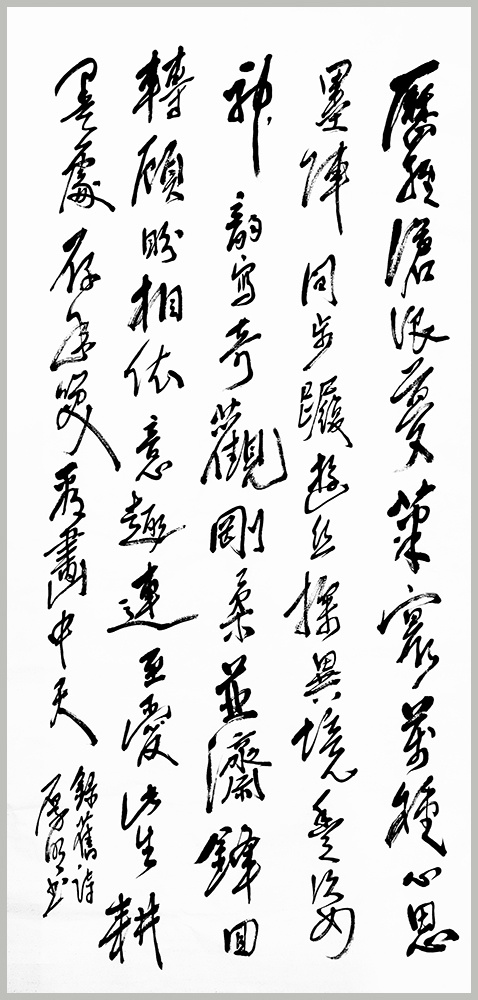 歷經滄浪夢筆寰萬種心思
墨陣同步躡遊絲探異境豐姿
神韻寫奇觀剛柔並濟鋒回
轉顧盼相依意趣連至愛此生耕
墨處存笑看畫中天
錄舊詩
厚書